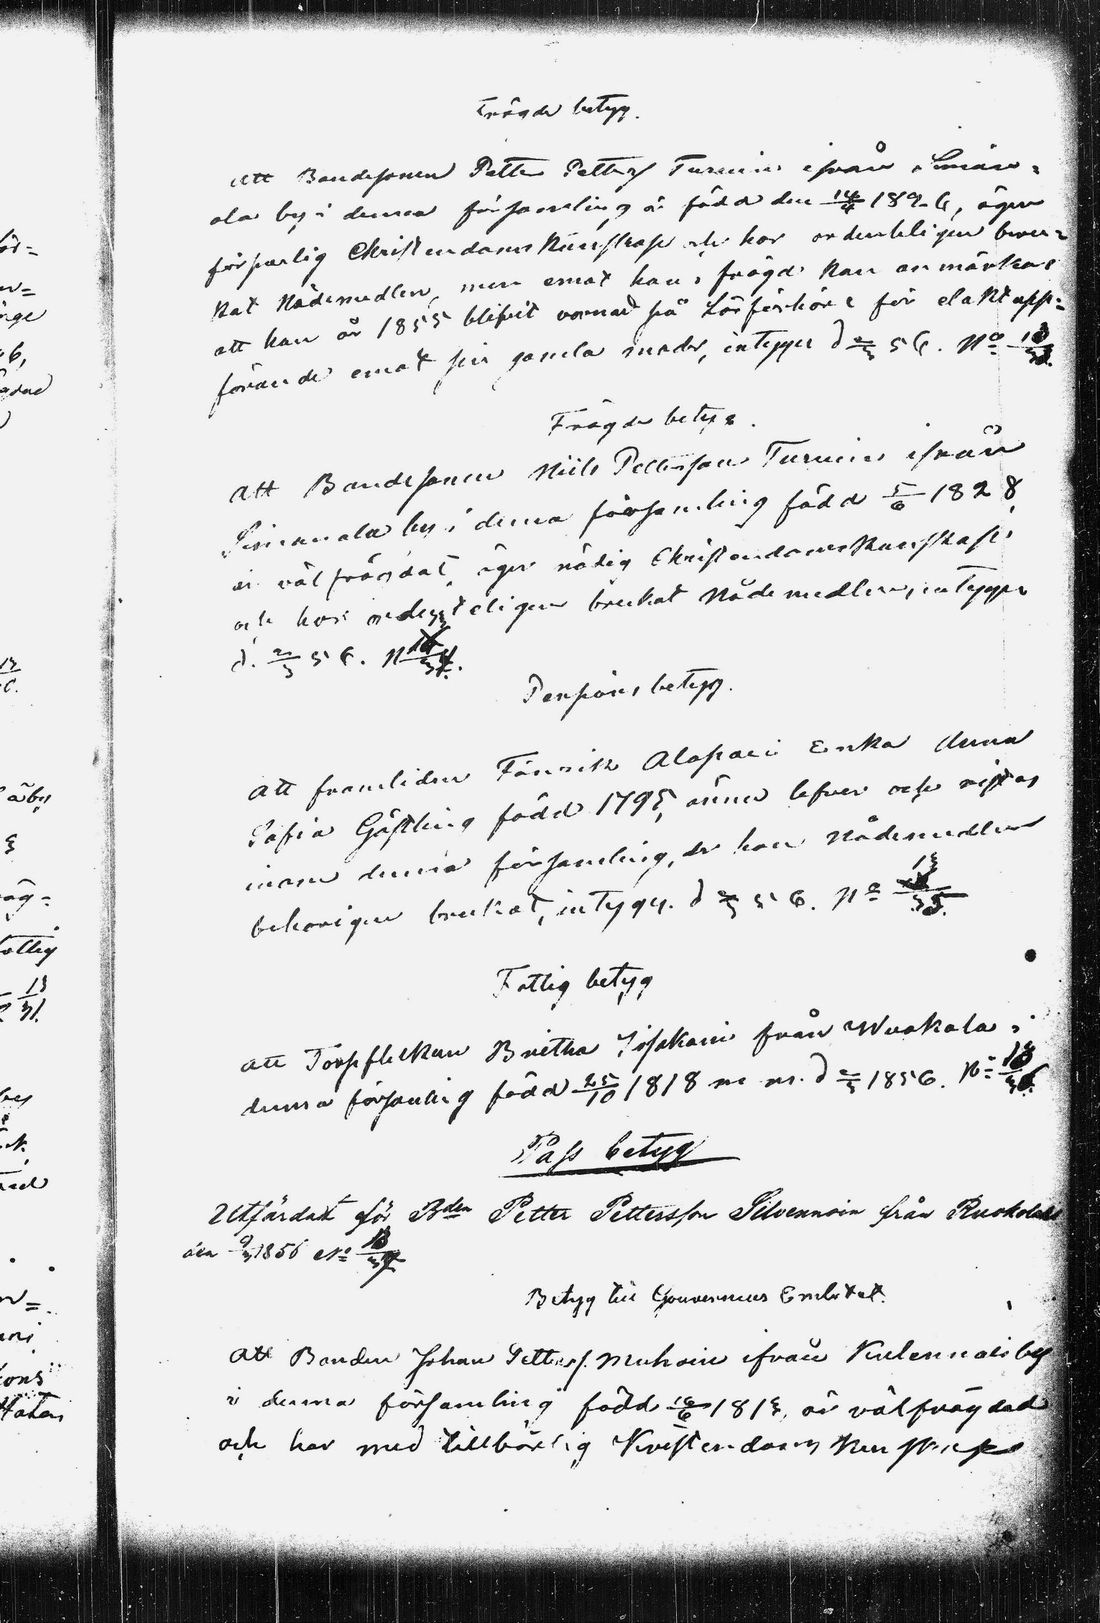 Frägde betyg.
Att Bondesonen Petter Petters Turunin ifrån Siman=
ala by i denna församling är född den 14/4 1826, äger
försvarlig Christendoms kunskap och har ordentligen beva=
kat Nådemedlen, men emot hans frägd kan anmärkas
att han år 1855 blifvit varnad på Läsförhöret för elakt upp=
förande emot sin gamla moder, intygar d 2/3 56. No 13/33.
Frägde betyg.
Att Bondesonen Nils Pettersson Turunin ifrån
Simanala by i denna församling född 5/6 1828,
är välfrägdat, äger nödig Christendomskunskap
och har ordenteligen brukat Nådemedlen, intygar
d. 2/3 56. N 13/34.
Pensions betyg.
Att framlidne Fänrik Alopaei Enka Anna
Sofia Gästling född 1795, ännu lefver och vistas
inom denna församling, der hon Nådemedlen
behörigen brukat, intygar. d 2/3 56. No 13/35.
Fattig betyg
Att Torpflickan Britha Ijäskain från Wuokala i
denna församling född 25/10 1818 m m. d 2/3 1856. No 13/36.
Pass betyg
Utfärdat för Bden Petter Pettersson Silvennoin från Ruokola
den 9/3 1856 No 13/37
Betyg till Gouverneurs Embetet.
Att Bonden Johan Petters. Muhoin ifrån Kulennois by
i denna församling född 12/6 1813, är välfrägdad
och har med tillbörlig Kristendoms kunskap